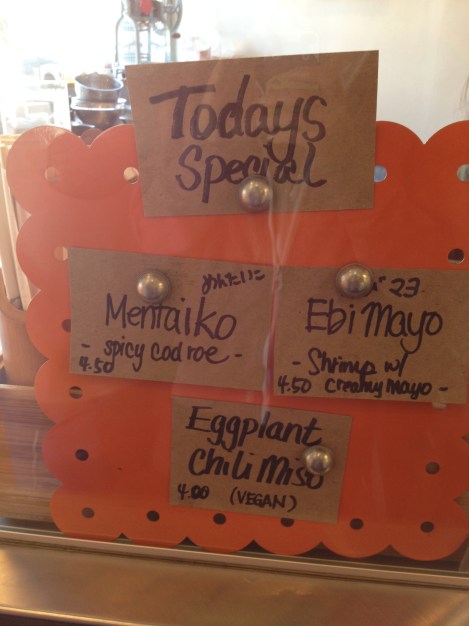 Todays
Special
めんたいこ
Mentaiko
- spicy cod roe -
4.50
Ebi Mayo
- Shrimp w/
4.50 creamy Mayo -
Eggplant
Chili Miso
4.00 (VEGAN)